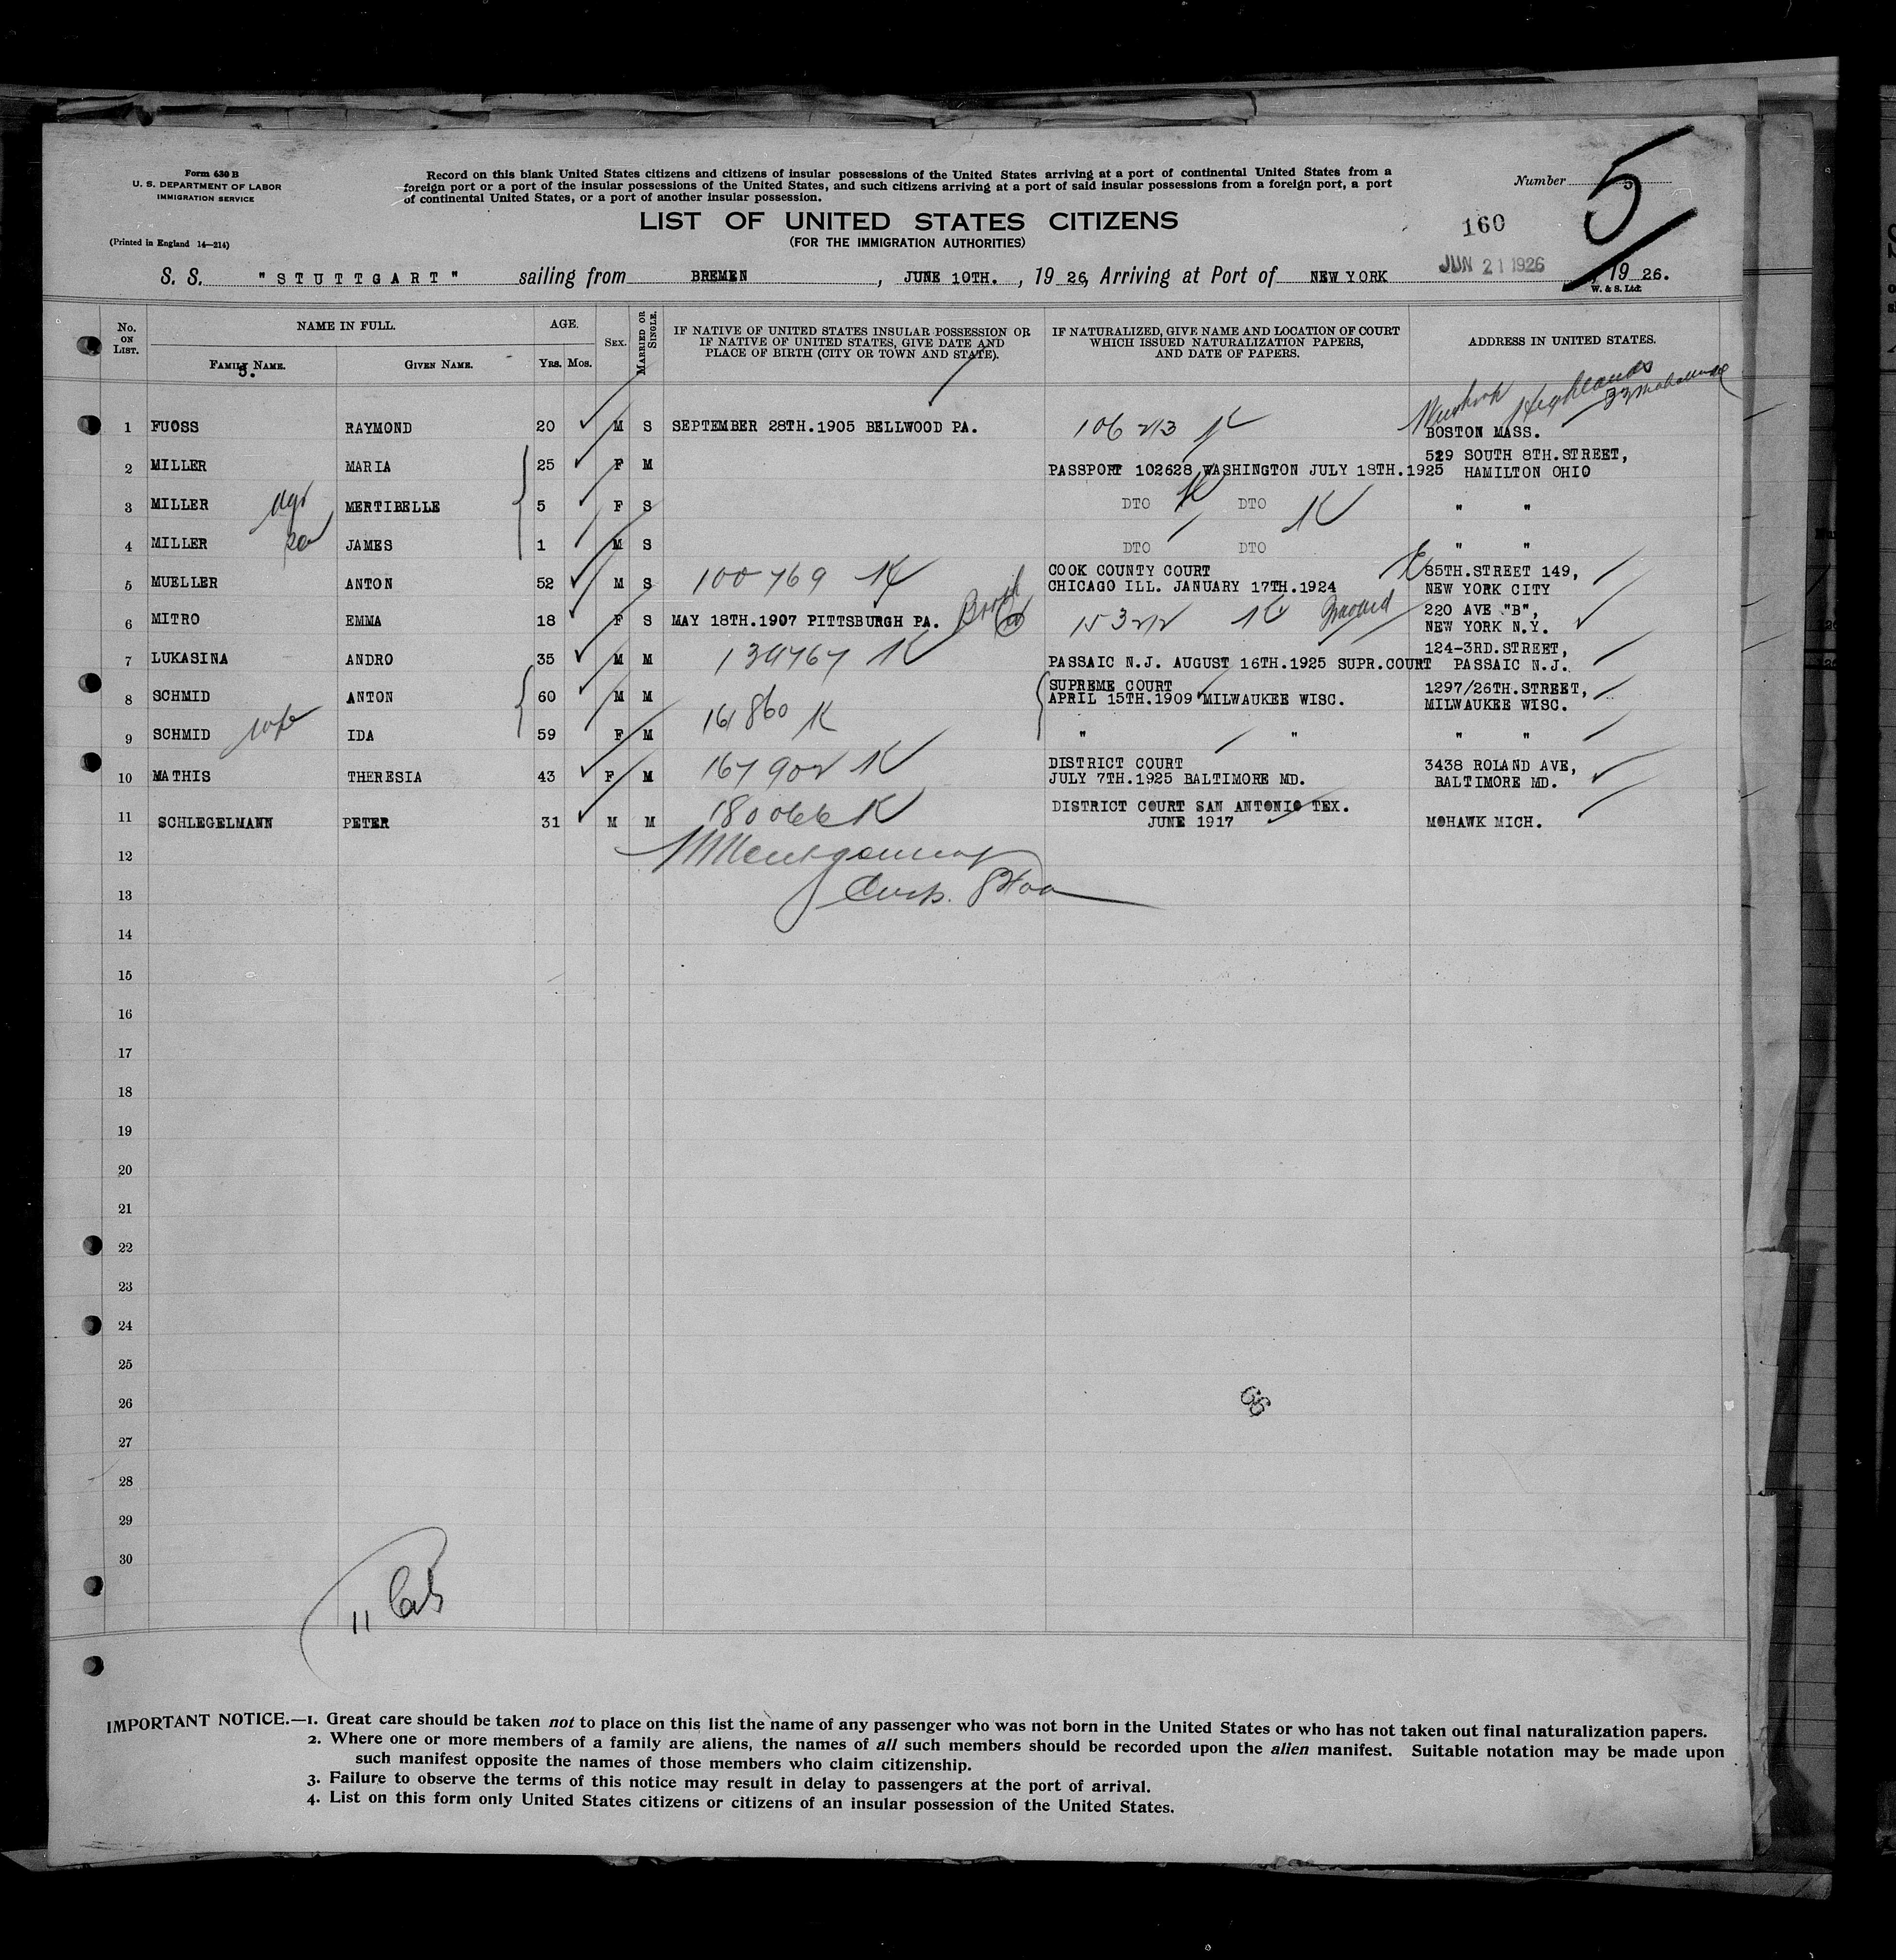 Form 630 B
U. S. DEPARTMENT OF LABOR
IMMIGRATION SERVICE
(Printed in England 14—214)
Record on this blank United States citizens and citizens of insular possessions of the United States arriving at a port of continental United States from a
foreign port or a port of the insular possessions of the United States, and such citizens arriving at a port of said insular possessions from a foreign port, a port
of continental United States, or a port of another insular possession.
Number 5
5
LIST OF UNITED STATES CITIZENS
(FOR THE IMMIGRATION AUTHORITIES)
160
S. S. "STUTTGART" sailing from BREMEN, JUNE 10TH., 1926, Arriving at Port of NEW YORK JUN 21 1926, 1926.
W. & S. Ltd.
No. ON LIST.
NAME IN FULL.
FAMILY NAME.
GIVEN NAME.
AGE.
YRS. MOS.
SEX.
MARRIED OR SINGLE.
IF NATIVE OF UNITED STATES INSULAR POSSESSION OR
IF NATIVE OF UNITED STATES, GIVE DATE AND
PLACE OF BIRTH (CITY OR TOWN AND STATE).
IF NATURALIZED, GIVE NAME AND LOCATION OF COURT
WHICH ISSUED NATURALIZATION PAPERS,
AND DATE OF PAPERS.
ADDRESS IN UNITED STATES.
5.
Highlands
1 FUOSS RAYMOND 20 M S SEPTEMBER 28TH.1905 BELLWOOD PA. 106213 BOSTON MASS.
2 MILLER MARIA 25 F M PASSPORT 102628 WASHINGTON JULY 18TH.1925 529 SOUTH 8TH.STREET,
HAMILTON OHIO
3 MILLER MERTIBELLE 5 F S DTO DTO " "
4 MILLER JAMES 1 M S DTO DTO " "
5 MUELLER ANTON 52 M S 100769 COOK COUNTY COURT
CHICAGO ILL. JANUARY 17TH.1924 85TH.STREET 149,
NEW YORK CITY
6 MITRO EMMA 18 F S MAY 18TH.1907 PITTSBURGH PA. 220 AVE "B",
NEW YORK N.Y.
7 LUKASINA ANDRO 35 M M 134767 PASSAIC N.J. AUGUST 16TH.1925 SUPR.COURT 124-3RD.STREET,
PASSAIC N.J.
8 SCHMID ANTON 60 M M 161860 SUPREME COURT
APRIL 15TH.1909 MILWAUKEE WISC. 1297/26TH.STREET,
MILWAUKEE WISC.
9 SCHMID wife IDA 59 F M " " " "
10 MATHIS THERESIA 43 F M 167902 DISTRICT COURT
JULY 7TH.1925 BALTIMORE MD. 3438 ROLAND AVE,
BALTIMORE MD.
11 SCHLEGELMANN PETER 31 M M 180066 DISTRICT COURT SAN ANTONIO TEX.
JUNE 1917 MOHAWK MICH.
12
13
14
15
16
17
18
19
20
21
22
23
24
25
26
27
28
29
30
11
IMPORTANT NOTICE.—1. Great care should be taken not to place on this list the name of any passenger who was not born in the United States or who has not taken out final naturalization papers.
2. Where one or more members of a family are aliens, the names of all such members should be recorded upon the alien manifest. Suitable notation may be made upon
such manifest opposite the names of those members who claim citizenship.
3. Failure to observe the terms of this notice may result in delay to passengers at the port of arrival.
4. List on this form only United States citizens or citizens of an insular possession of the United States.